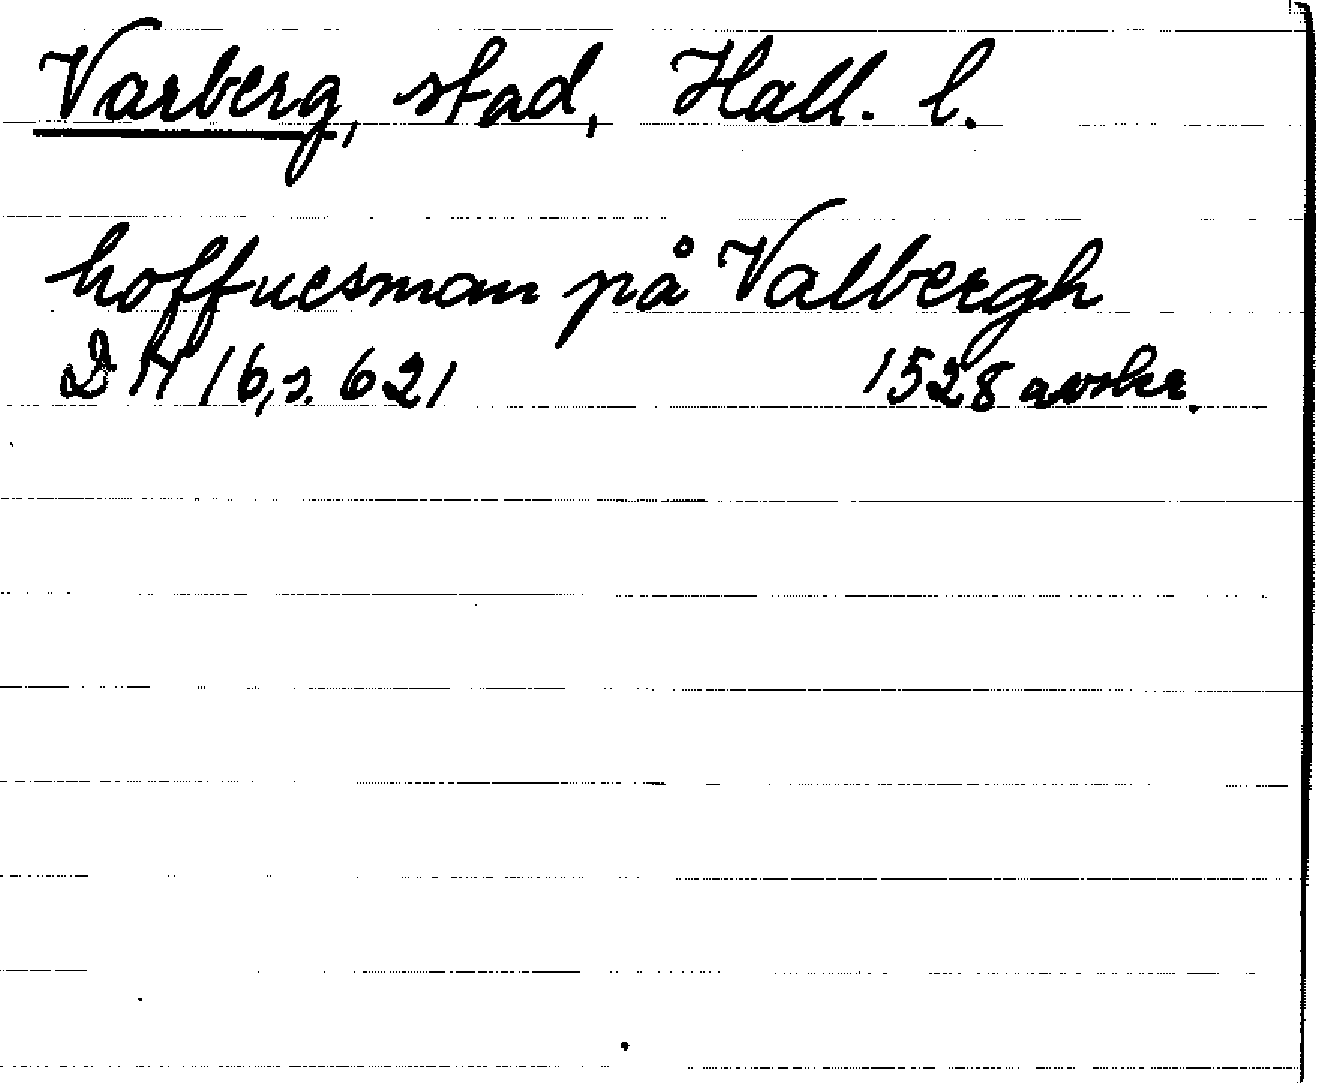 Varberg, stad, Hall. l.
hoffuesman på Valbergh
DH 16, s. 621 1528 avskr.